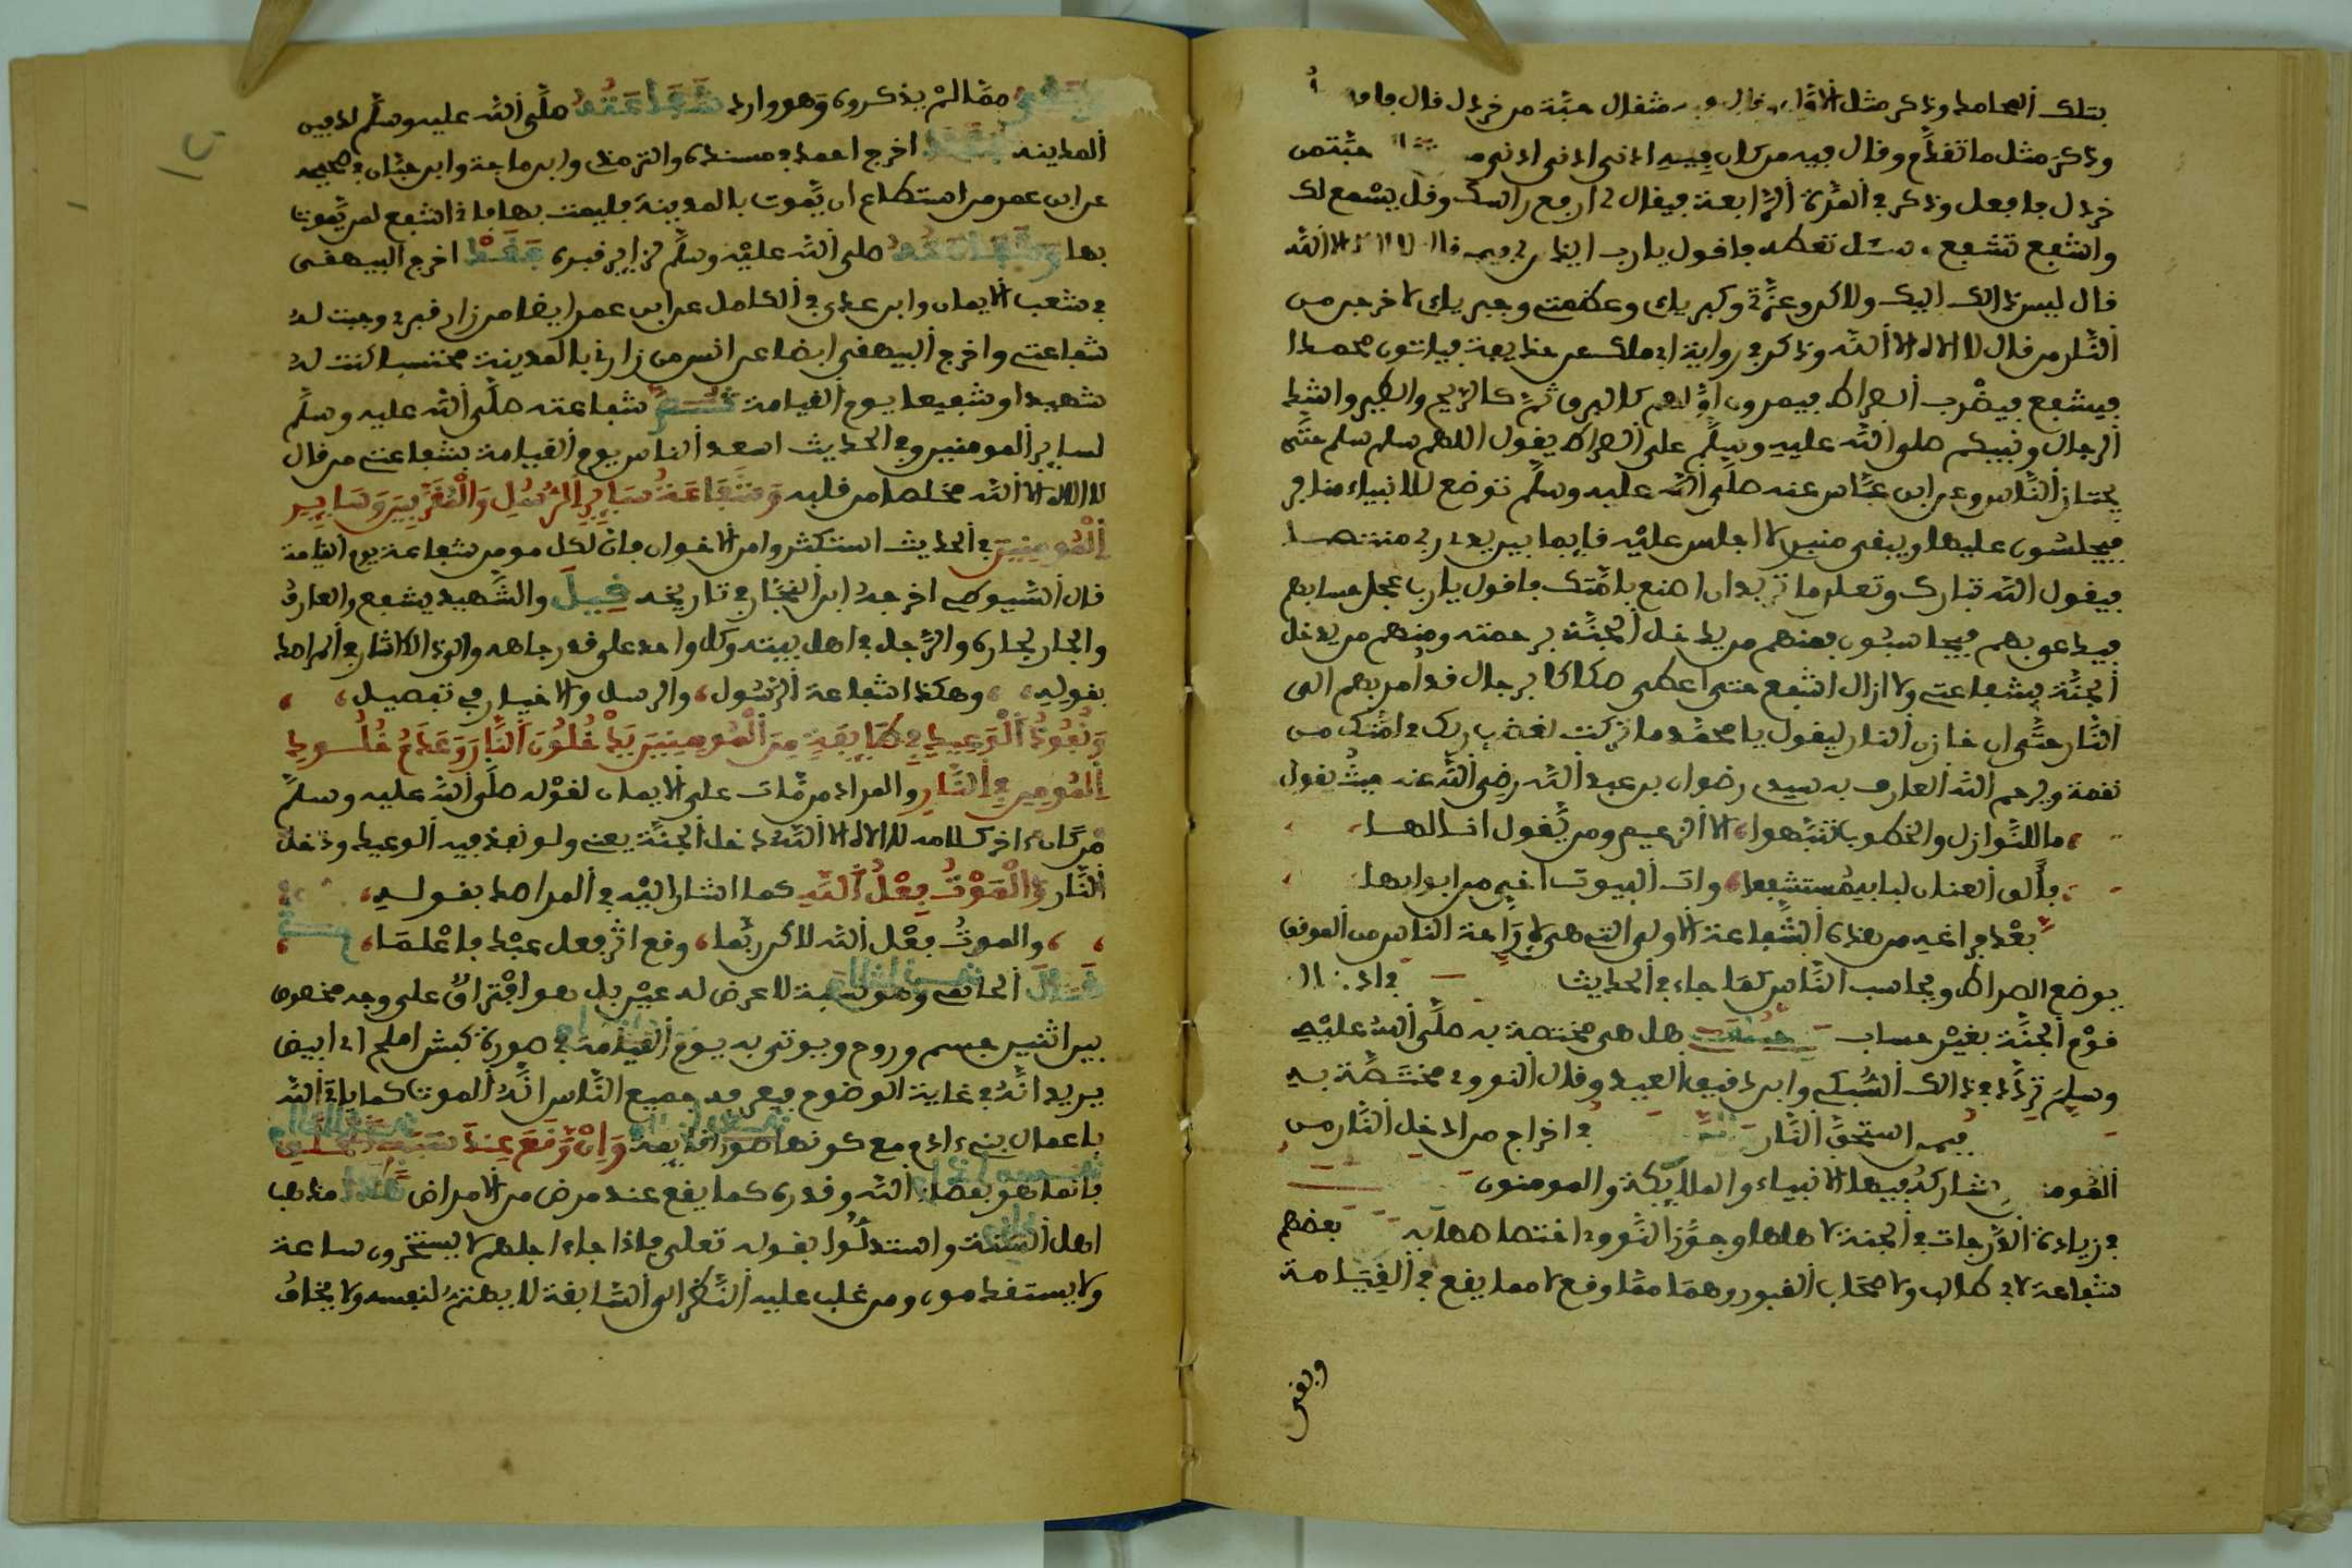 بتلك المحامد وذكر مثل الاول وقال فيه مثقال حبة من خردل قال فافعل
وذكر مثل ما تقدم وقال فيه من كان فيه ادنى ادنى ادنى من حبة من
خردل فافعل وذكر في المرة الرابعة فيقال لي ارفع راسك وقل يسمع لك
واشفع تشفع وسل تعطه فاقول يارب ايذن لي فيمن قال لا اله الا الله
قال ليس ذالك اليك ولاكن وعزتي وكبريايى وعظمتي وجبريايى لاخرجن من
النار من قال لا اله الا الله وذكر في رواية ابي مالك عن حذيفة فياتون محمدا
فيشفع فيضرب الصراط فيمرون اولهم كالبرق ثم كالريح والطير واشد
الرجال ونبيكم صلى الله عليه وسلم على الصراط يقول اللهم سلم سلم حتى
يجتاز الناس وعن ابن عباس عنه صلى الله عليه وسلم توضع للانبياء منابر
فيجلسون عليها ويبقى منبري لا اجلس عليه قايما بين يدي ربي منتصبا
فيقول الله تبارك وتعلى ما تريد ان اصنع بامتك فاقول يارب عجل حسابهم
فيدعى بهم فيحاسبون فمنهم من يدخل الجنة برحمته ومنهم من يدخل
الجنة بشفاعتي ولا ازال اشفع حتى اعطى صكاكا برجال قد امر بهم الى
النار حتى ان خازن النار ليقول يا محمد ما تركت لغضب ربك في امتك من
نقمة ويرحم الله العارف به سيدي رضوان بن عبد الله رضي الله عنه حيث يقول
ما للنوازل والخطوب تنبهوا، الا الزعيم ومن يقول انا لها
فألق العنان لبابه مستشفعا، وات البيوت اخي من ابوابها
بعد فراغه من هذه الشفاعة الاولى التي هي لاراحة الناس من الموقف
يوضع الصراط ويحاسب الناس كما جاء في الحديث في ادخال
قوم الجنة بغير حساب هل هي مختصة به صلى الله عليه
وسلم تردد في ذالك السبكي وابن دقيق العيد وقال النووي مختصة به
فيمن استحق النار في اخراج من ادخل النار من
المومنين يشاركه فيها الانبياء والملايكة والمومنون
في زيادة الدرجات في الجنة لاهلها وجوز النووي اختصاصها به بعضهم
شفاعة لابي طالب ولاصحاب القبور وهما مما وقع لا مما يقع في القيامة
وبقي
وبقي مما لم يذكروه وهو وارد شفاعته صلى الله عليه وسلم لدفين
المدينة فقط اخرج احمد في مسنده والترمذي وابن ماجة وابن حبان في صحيحه
عن ابن عمر من استطاع ان يموت بالمدينة فليمت بها فاني اشفع لمن يموت
بها وشفاعته صلى الله عليه وسلم لزاير قبره فقط اخرج البيهقي
في شعب الايمان وابن عدي في الكامل عن ابن عمر ايضا من زار قبري وجبت له
شفاعتي واخرج البيهقي ايضا عن انس من زارني بالمدينة محتسبا كنت له
شهيدا وشفيعا يوم القيامة ثم شفاعته صلى الله عليه وسلم
لساير المومنين وفي الحديث اسعد الناس يوم القيامة بشفاعتي من قال
لا اله الا الله مخلصا من قلبه وشفاعة ساير الرسل والمقربين وساير
المومنين في الحديث استكثروا من الاخوان فان لكل مومن شفاعة يوم القيامة
قال السيوطي اخرجه ابن النجار في تاريخه قيل والشهيد يشفع والعارف
والجار لجاره والرجل في اهل بيته وكل واحد على قدر جاهه والى ذالك اشار في المراصد
بقوله، وهكذا شفاعة الرسول، والرسل والاخيار في تفصيل،
ونفوذ الوعيد في طايفة من المومنين يدخلون النار وعدم خلود
المومن في النار والمراد من مات على الايمان لقوله صلى الله عليه وسلم
من كان ءاخر كلامه لا اله الا الله دخل الجنة يعني ولو نفذ فيه الوعيد ودخل
النار والموت بفعل الله كما اشار اليه في المراصد بقوله،
، والموت بفعل الله لاكن ربما، وقع اثر فعل عبد فاعلما،
قال الجاهي وهو نسبة لا عرض له عين بل هو افتراق على وجه مخصوص
بين اثنين جسم وروح ويوتى به يوم القيامة في صورة كبش املح اي ابيض
يريد انه في غاية الوضوح فيعرفه جميع الناس انه الموت كما ياتي الله
باعمال بني ءادم مع كونها صورا قايمة وان وقع عند
فانما هو بقضاء الله وقدره كما يقع عند مرض من الامراض هذا مذهب
اهل السنة واستدلوا بقوله تعلى فاذا جاء اجلهم لا يستخرون ساعة
ولا يستقدمون ومن غلب عليه النظر الى السابقة لا يهتم لنفسه ولا يخاف